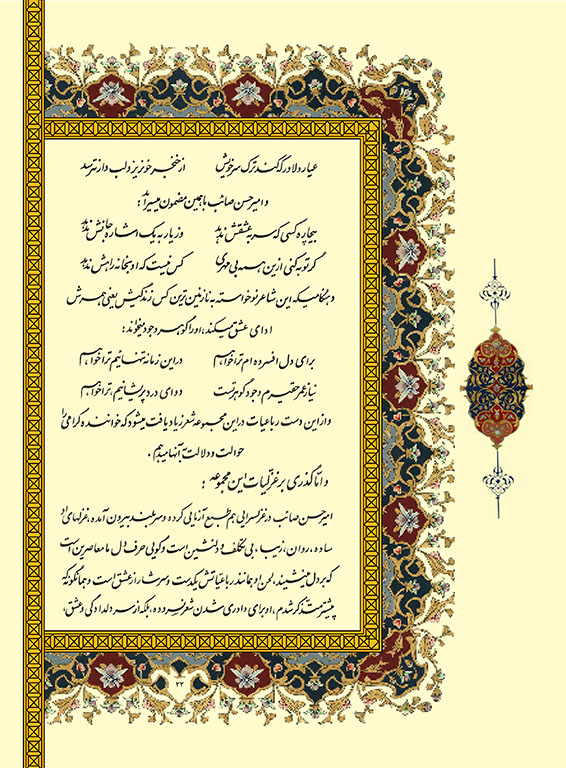 عیار دلاور که کند ترک سر خویش از خنجر خونریز و لب دار نترسد
و امیرحسن صائب با همین مضمون میسراید:
بیچاره کسی که سر به عشقش ندهد وز یار به یک اشاره جانش ندهد
گر توبه کنی از این همه بی مهری کس نیست که او به خانه راهش ندهد
و هنگامیکه این شاعر نوخواسته به نازنین ترین کس زندگیش یعنی همسرش
ادای عشق میکند، او را گوهر وجود میخواند:
برای دل افسرده ام ترا خواهم در این زمانه تنهائیم ترا خواهم
نیاز عمر حقیرم وجود گوهر تست دوای درد پریشانیم، ترا خواهم
و از این دست رباعیات در این مجموعه شعر زیاد یافت میشود که خواننده گرامی را
حوالت و دلالت به آنها میدهم.
و امّا گذری بر غزلیات این مجموعه:
امیرحسن صائب در غزلسرایی هم طبع آزمایی کرده و سربلند بیرون آمده، غزلهای او
ساده، روان، زیبا، بی تکلف و دلنشین است و گویی حرف دل ما معاصرین است
که بر دل مینشیند، لحن او همانند رباعیاتش یکدست و سرشار از عشق است و همانگونه که
پیشتر متذکر شدم، او برای داوری شدن شعر نسروده، بلکه از سر دلدادگی و عشق،
۲۳